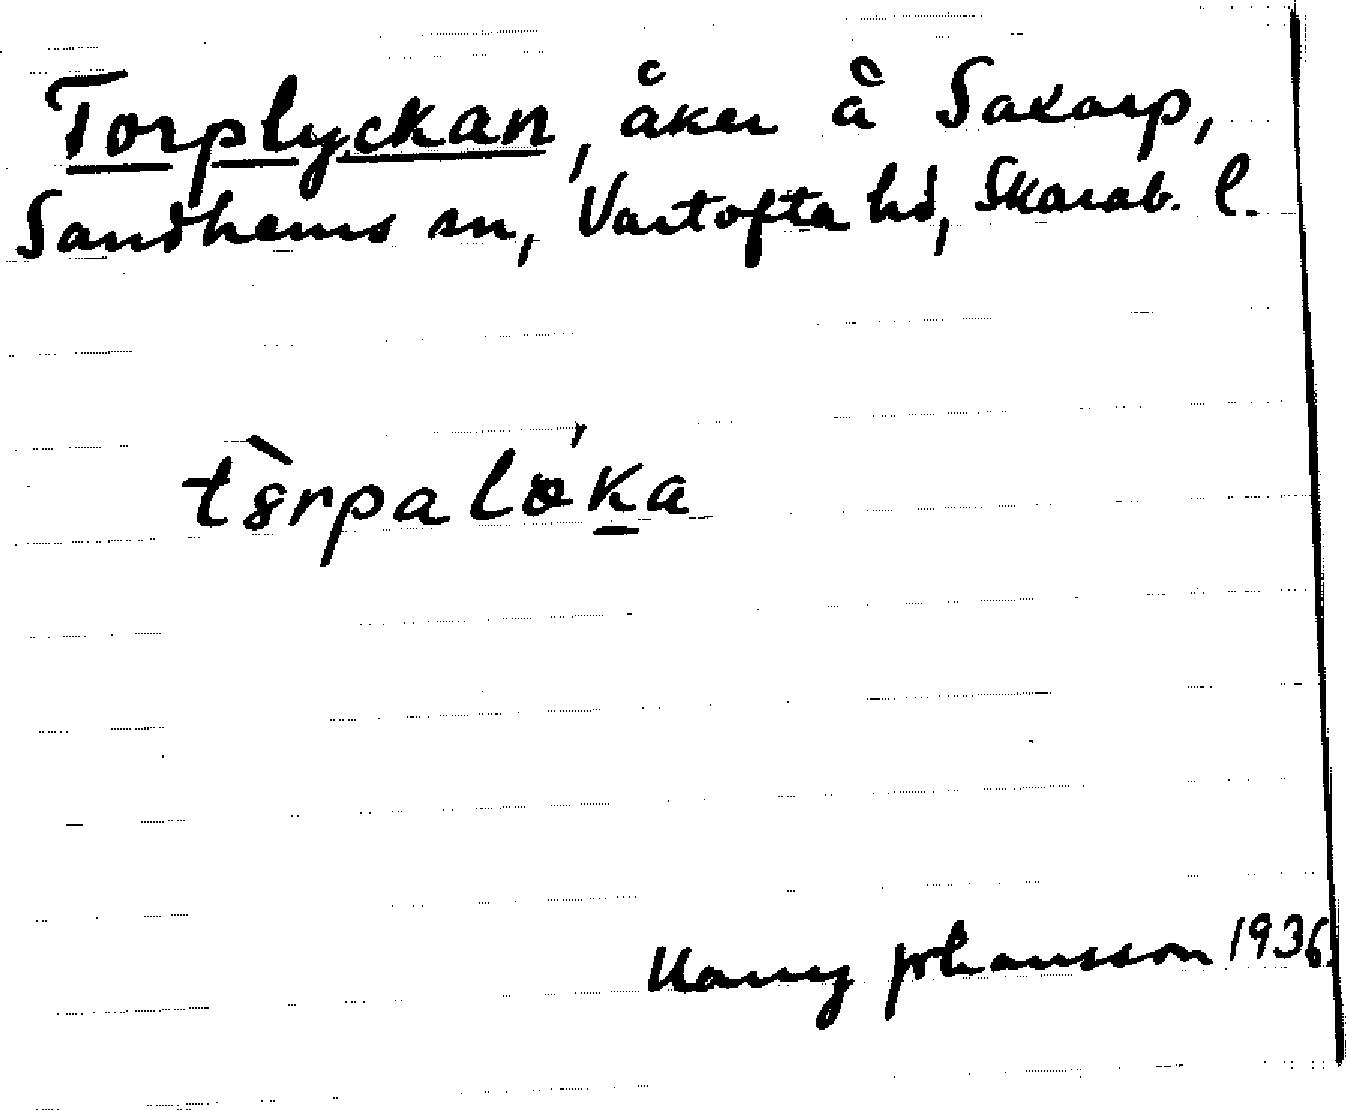 Torplyckan, åker å Saxarp,
Sandhems sn, Vartofta hd, Skarab. l.
tȣ̀rpalǿḵa
Harry Johansson 1936.